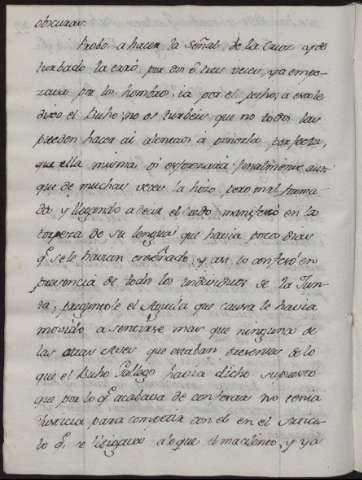 obscuras.
Probo a hacer la Señal de la Cruz y de
turbado la erró por dos ó tres veces, ya empe-
zava por los hombros, ia por el pecho; a esto le
dixo el Buho; no os turbeis que no todos las
pueden hacer ni atentos á ponerla perfecta,
que ella misma se Finalmente aun
que de muchas veces la hizo, pero mal forma-
da, y llegando a decir el Credo, manifestó en la
torpeza de su lengua que havia pocos dias
q.e se le havian enseñado, y asi lo confesó en
presencia de todos los individuos de la Jun-
ta, preguntole el Aguila que causa le havia
movido a sentirse mas que ninguna de
las otras Aves que estaban presentes de lo
que el Buho Gallego havia dicho supuesto
que por lo q.e acababa de confesar no tenia
Justicia para competir con él en el Articu-
lo q.e se litigava a lo que el macilento, y ya